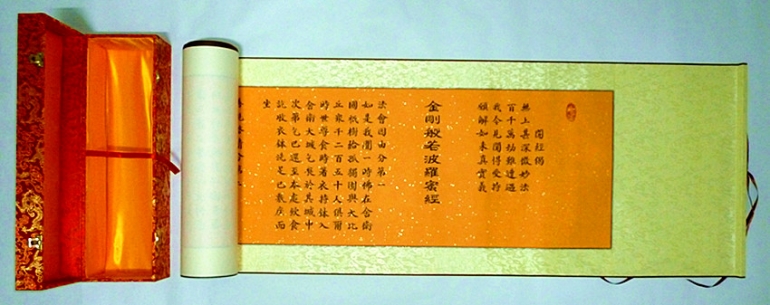 開經偈
無上甚深微妙法
百千萬劫難遭遇
我今見聞得受持
願解如來真實義
金剛般若波羅蜜經
法會因由分第一
如是我聞一時佛在舍衛
國祇樹給孤獨園與大比
丘眾千二百五十人俱爾
時世尊食時著衣持缽入
舍衛大城乞食於其城中
次第乞已還至本處飯食
訖收衣缽洗足已敷座而
坐